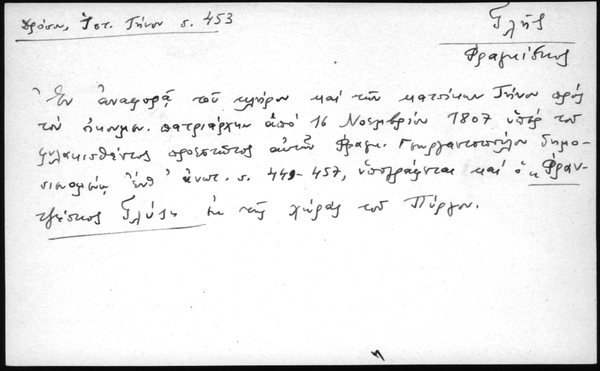 Δρόσου, Ἱστ. Τήνου σ. 453
Γλύ̈ης
Φραγκίσκος
Ἐν ἀναφορᾷ τοῦ κλήρου καὶ τῶν κατοίκων Τήνου πρὸς
τὸν οἰκουμ. πατριάρχην ἀπὸ 16 Νοεμβρίου 1807 ὑπὲρ τοῦ
φυλακισθέντος προεστῶτος αὐτῶν Φραγκ. Γεωργαντοπούλου δημο-
σιευομένῃ ἐνθ' ἀνωτ. σ. 449-457, ὑπογράφεται καὶ ὁ "Φραν-
τζέσκος Γλύ̈ης ἐκ τῆς χώρας τοῦ Πύργου.